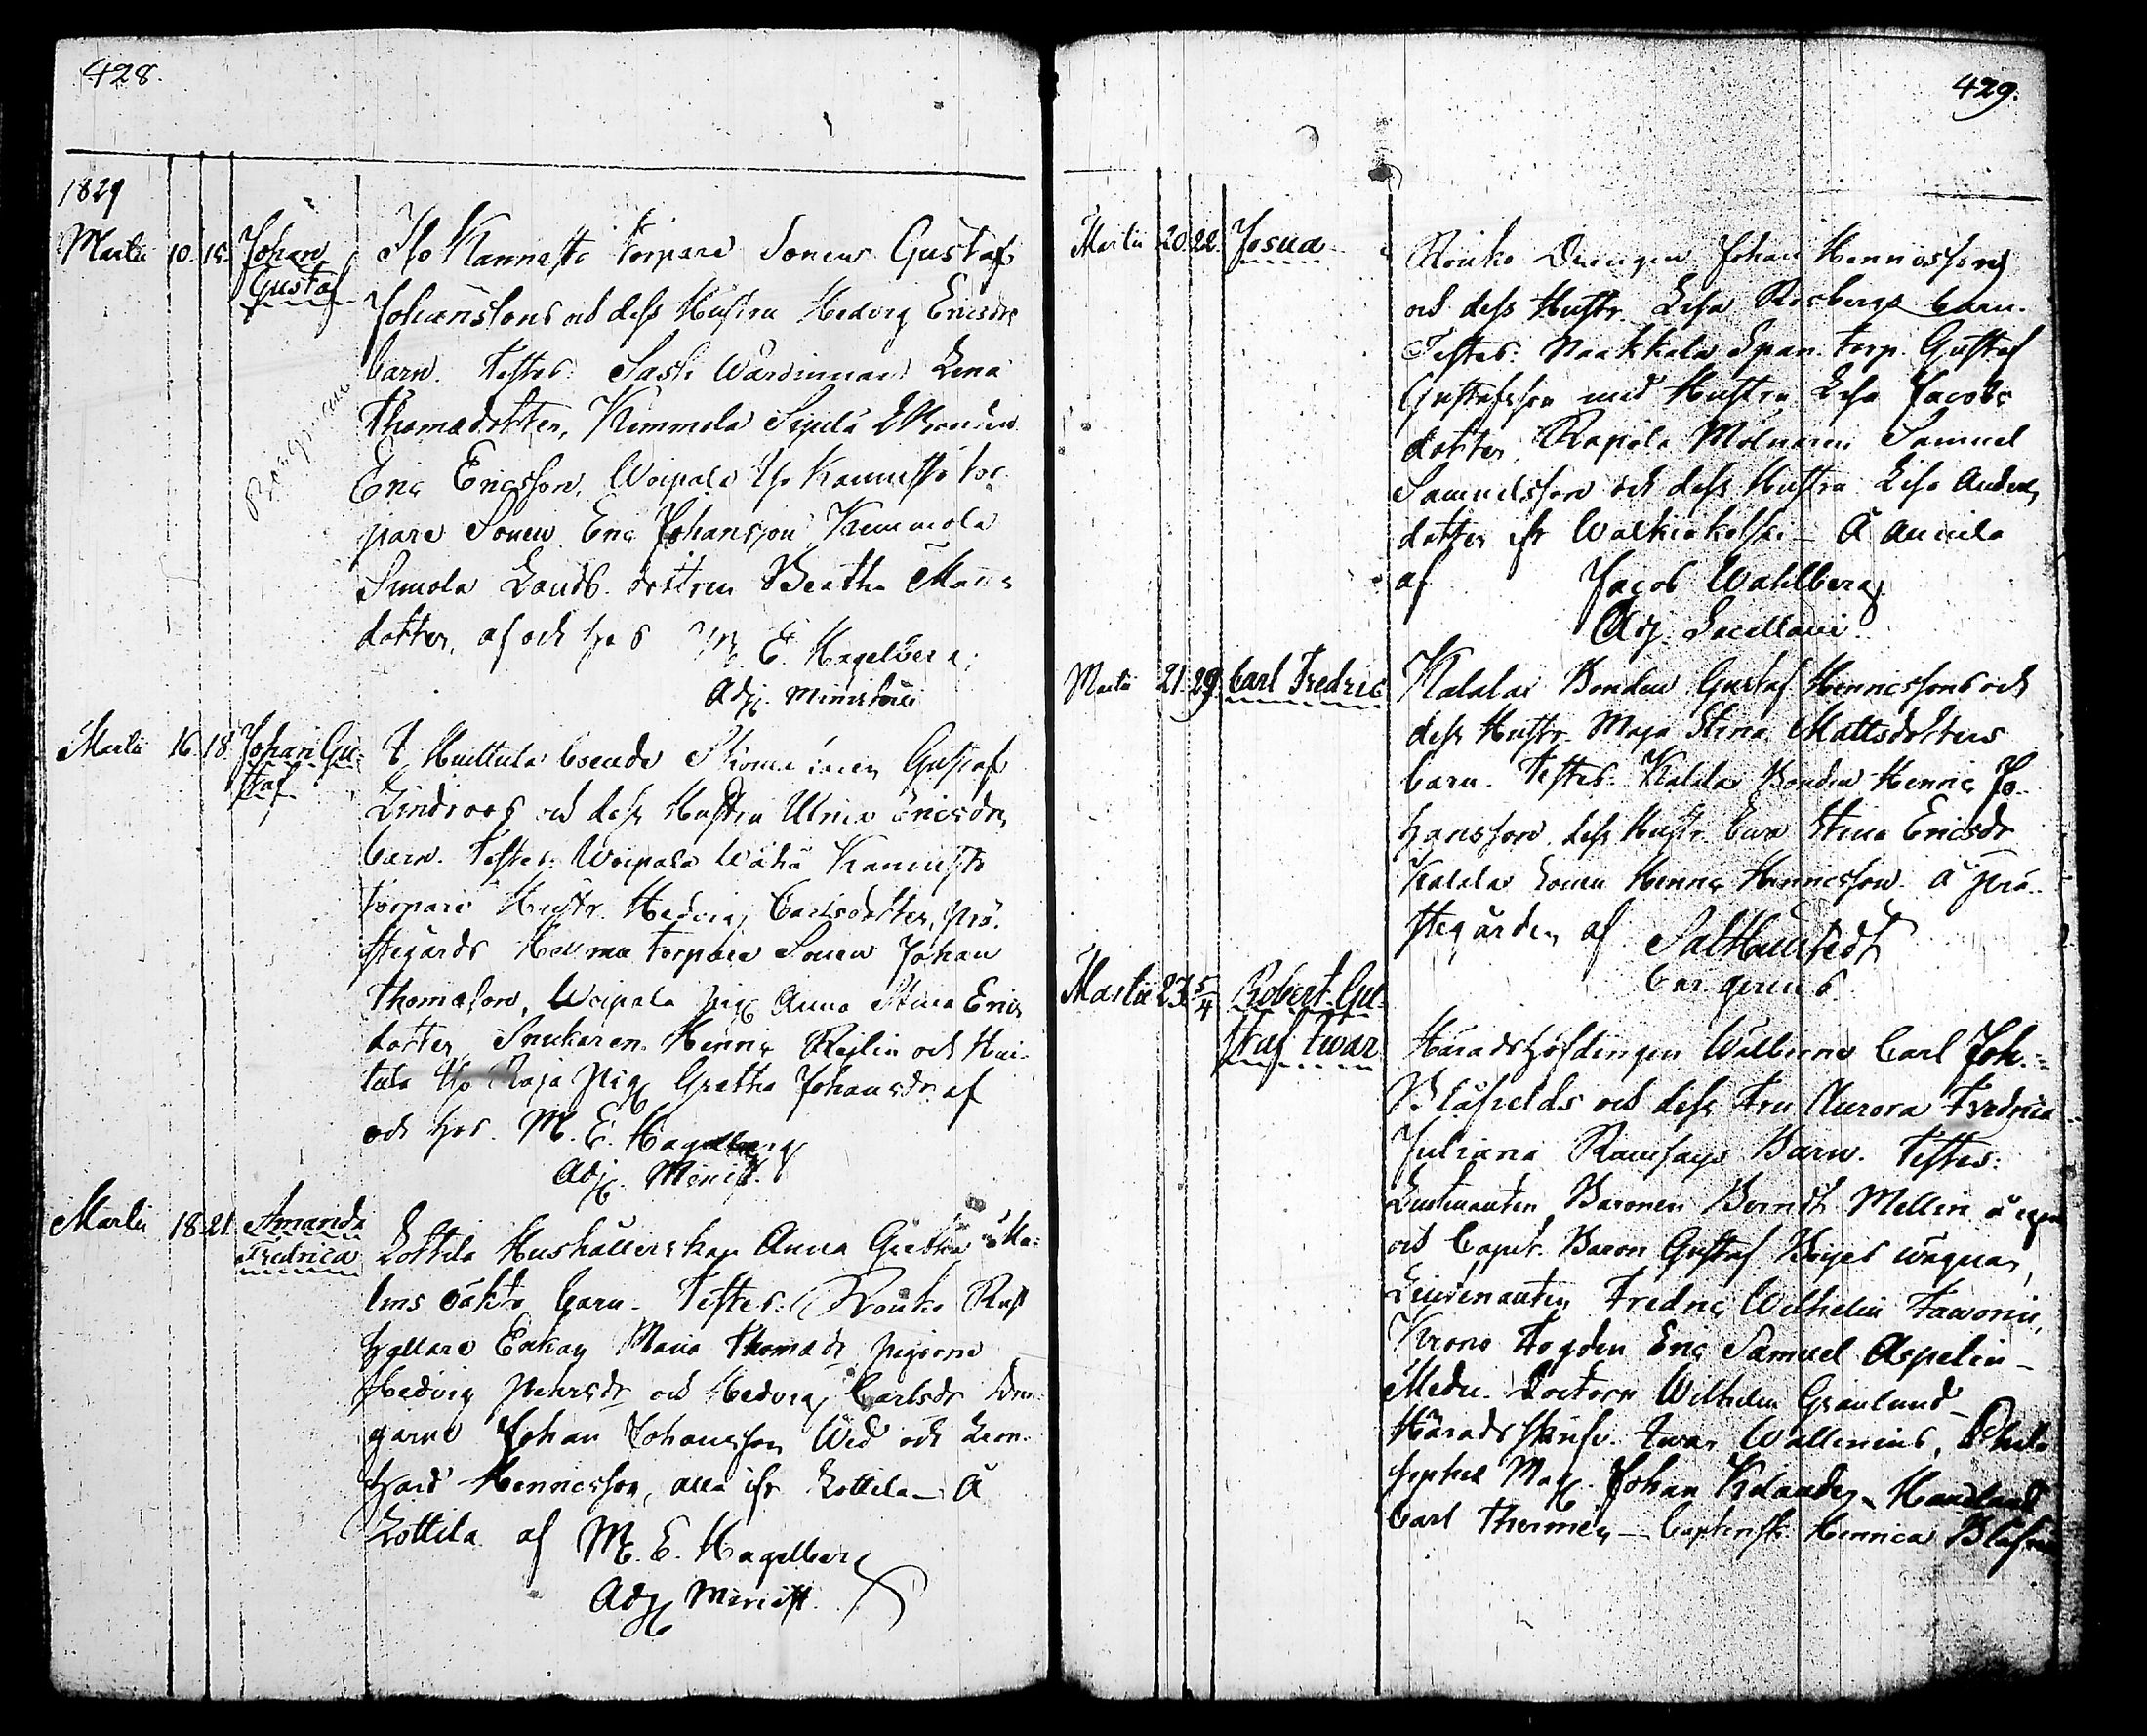 428.
1829
Martii 10. 15. Johan Gustaf
Iso Kannisto Torpare Sonen Gustaf
Johanssons och dess Hustru Hedvig Ericsdrs
barn. Testes: Sasti Wärdinnan Lena
Thomædotter, Kemmola Sipilä Bonden
Eric Ericsson, Woipala Iso Kannisto tor
pare Sonen Eric Johansson Kemmola
Simola Landb. dottren Beatha Matts
dotter, af och hos M. E. Hagelberg,
Adj. Ministerii
Martii 16. 18. Johan Gu
staf
I Huittula boende Gustaf
Lindroos och dess Hustru Ulrica Ericsdrs
barn. Testes: Woipala Wähä Kannisto
torpare Hustr. Hedvig Carlsdotter, prä
stegårds torpare Sonen Johan
Thomæson, Woipala pig. Anna Stina Erics
dotter, Snickaren Henric Rejlin och Hui
tula Iso Raja pig. Gretha Johansdr. af
och hos. M. E. Hagelberg
Adj. Minist.
Martii 18. 21. Amanda
Fredrica
Lottila Hushållerskan Anna Gretha
lms oäkta barn. Testes: Rönkö Rust
hållare Enkan Maria Thomædr, pigorne
Hedvig Pehrsdr och Hedvig Carlsdr drän
garne Johan Johansson Wid och Leon
hard Henricsson, alla ifr. Lottila - Å
Lottila af M. E. Hagelberg
Adj. Minist.
429.
Martii 20. 22. Josua
Rönkö Drängen Johan Henricssons
och dess Hustr. Lisa Rosbergs barn.
Testes: Naakkala Span. torp. Gustaf
Gustafsson med Hustru Lisa Jacobs
dotter, Rapola Mölnaren Samuel
Samuelsson och dess Hustru Lisa Anders
dotter ifr - Å Annila
af Jacob Wahlberg
Adj. Sacellani.
Martii 21. 29. Carl Fredric
Kalalax Bonden Gustaf Henricssons och
dess Hustr. Maja Stina Mattsdotters
barn. Testes: Bonden Henric Jo
hansson dess Hustr. Eva Stina Ericsdr
Sonen Henric Henricsson. Å prä
stegården af
Martii 23. 5/4 Robert Gu
staf Iwar
Häradshöfdingen Wälborne Carl Joh.
Blåfields och dess Fru Aurora Fredrica
Juliana Ramsays Barn. Testes:
Lieutnanten Baronen Berndt Mellin å egna
och Capit. Baron Gustaf Boijes wägnar,
Lieutenanten Fredric Wilhelm
Krono Fogden Eric Samuel Aspelin -
Medic. Doctorn Wilhelm Granlund -
Häradsskrifv. Iwar Wallenius, Philo
sophiæ Mag. Johan
Carl - Henrica